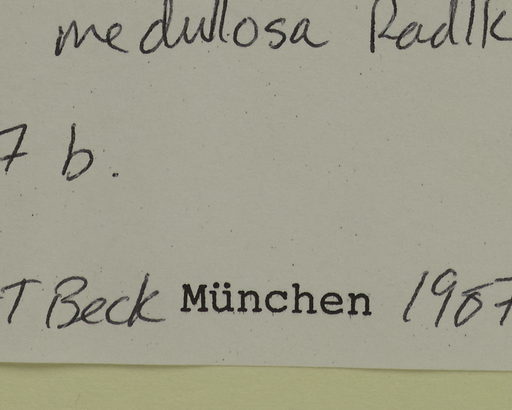 medullosa Radlk
7 b.
T Beck München 1987